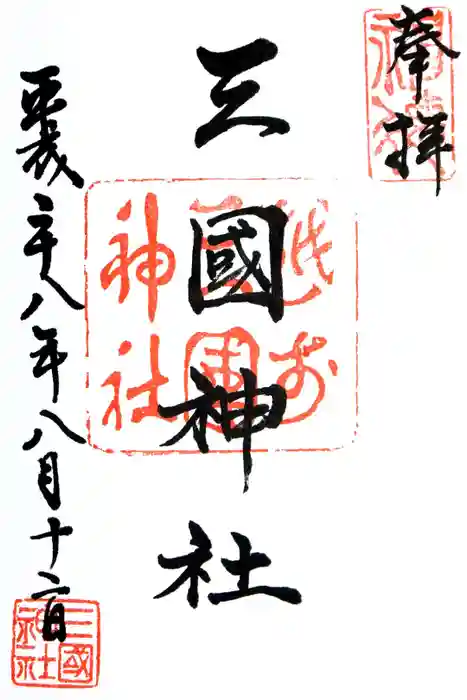 奉拝
三國神社
平成二十八年八月十二日
越前
三國
神社
三國
神社